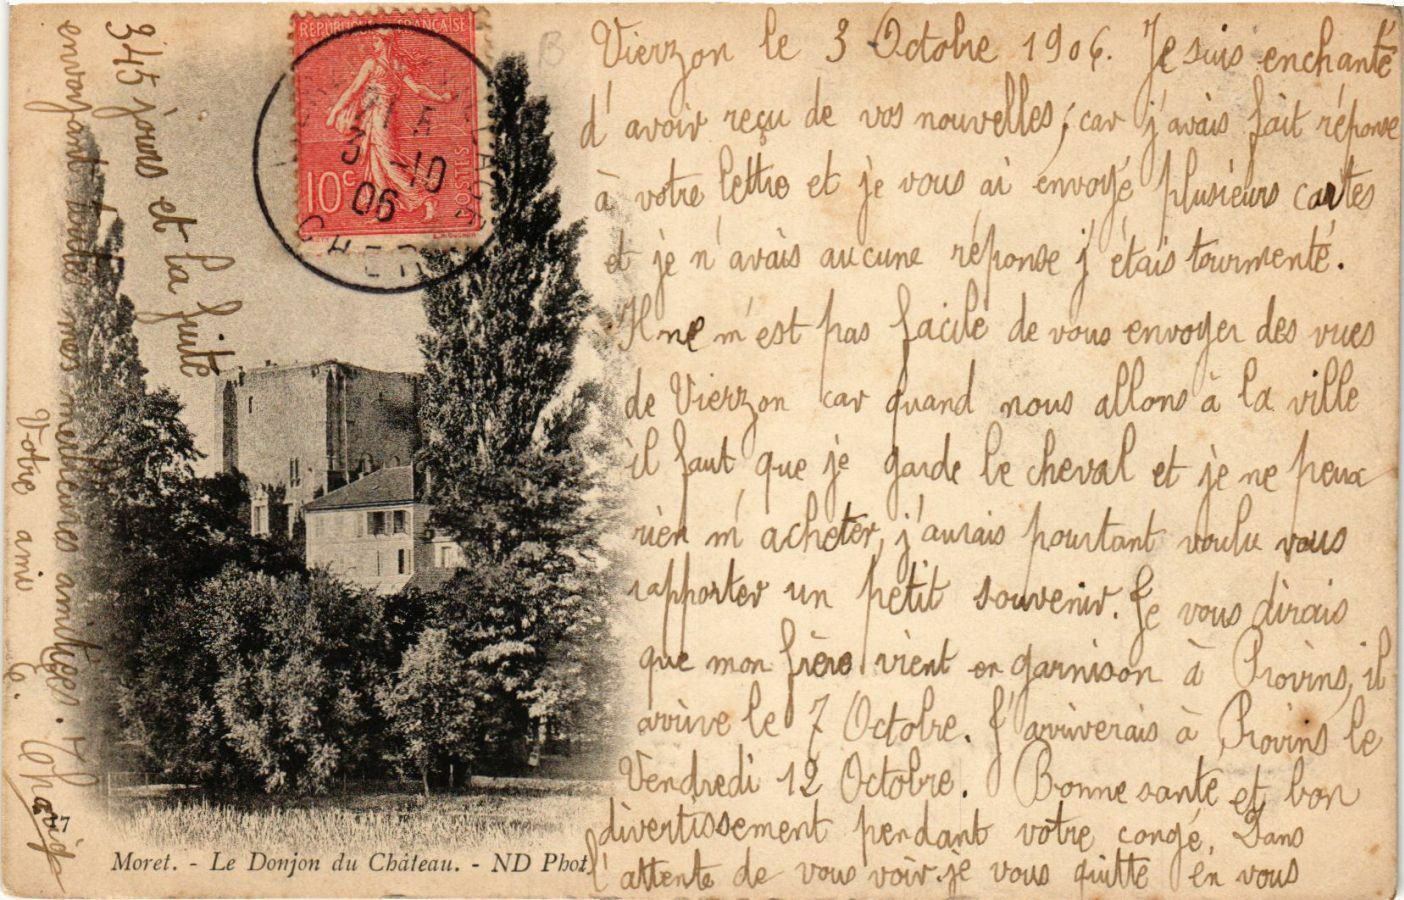 Vierzon le 3 Octobre 1906. Je suis enchanté
d'avoir reçu de vos nouvelles, car j'avais fait réponse
à votre lettre et je vous ai envoyé plusieurs cartes
et je n'avais aucune réponse j'étais tourmenté.
Il ne m'est pas facile de vous envoyer des vues
de Vierzon car quand nous allons à la ville
il faut que je garde le cheval et je ne peux
rien m'acheter, j'aurais pourtant voulu vous
rapporter un petit souvenir. Je vous dirais
que mon frère vient en garnison à Provins, il
arrive le 7 Octobre. J'arriverais à Provins le
Vendredi 12 Octobre. Bonne santé et bon
divertissement pendant votre congé. Dans
l'attente de vous voir je vous quitte en vous
envoyant toute mes meilleures amitiées.
Votre ami
345 jours et la fuite
RÉPUBLIQUE FRANÇAISE
10c
POSTES
3 -10
06
CHER
B
27
Moret. - Le Donjon du Château. - ND Phot